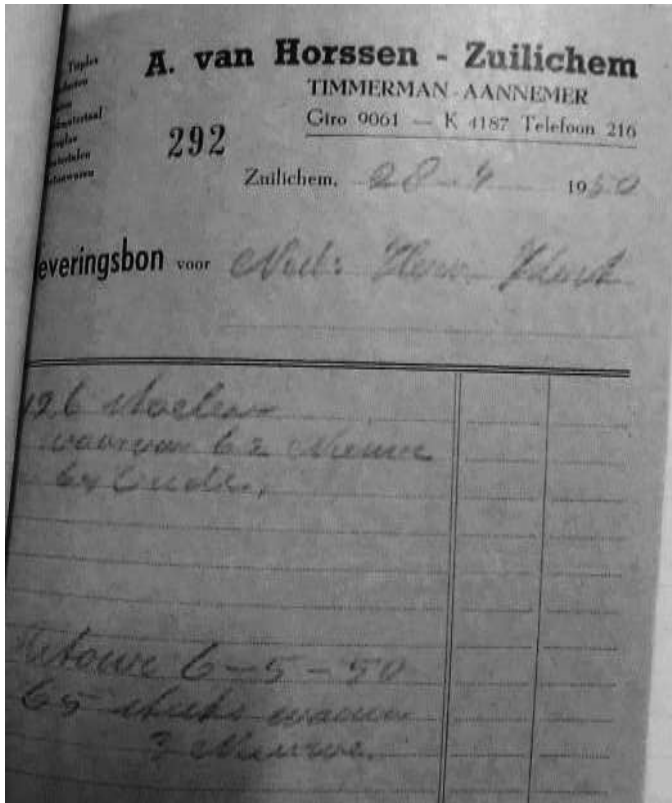 Triplex
A. van Horssen - Zuilichem
TIMMERMAN - AANNEMER
Giro 9061 — K 4187 Telefoon 216
292
Zuilichem, 28-4 1950
leveringsbon voor Ned: Herv. Kerk
126 stoelen
waarvan 62 Nieuwe
64 Oude.
Retour 6-5-50
65 stuks waarvan
3 Nieuwe.